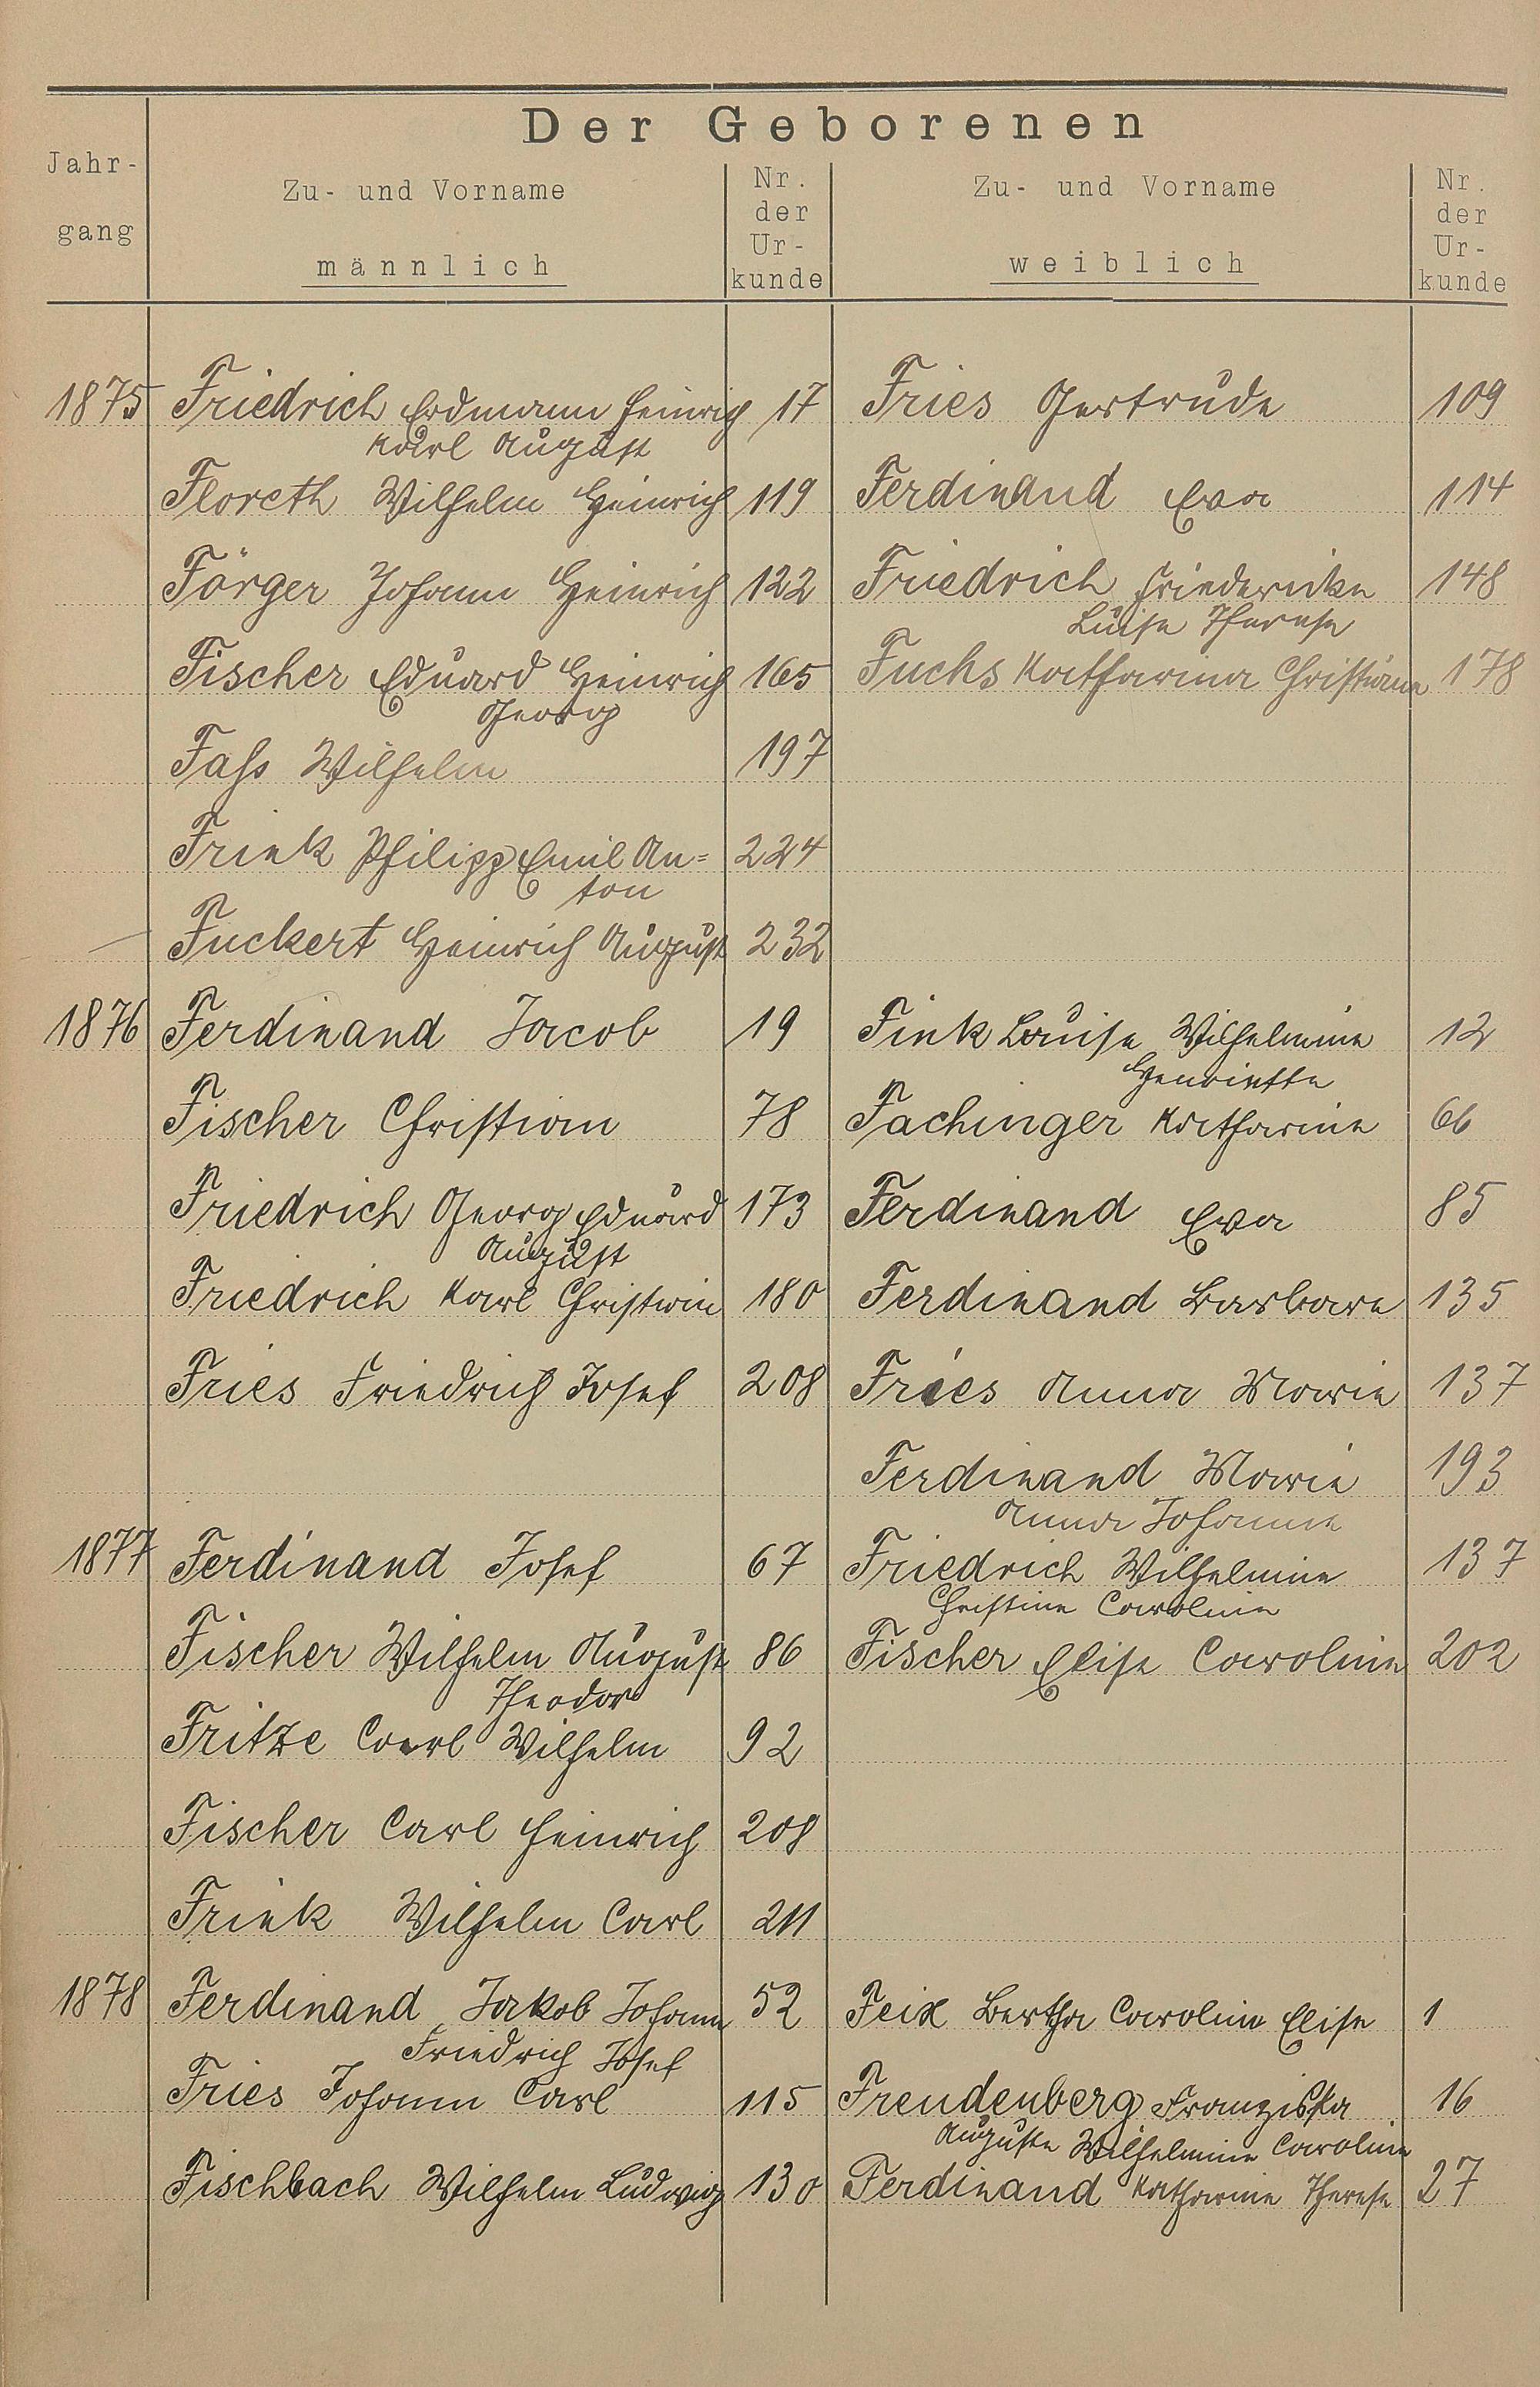 Der Geborenen
Jahr-
gang
Zu- und Vorname
männlich
Nr.
der
Ur-
kunde
Zu- und Vorname
weiblich
Nr.
der
Ur-
kunde
1875 Friedrich Erdmann Heinrich 17 Fries Gertrude 109
Karl August
Floreth Wilhelm Heinrich 119 Ferdinand Eva 114
Förger Johann Heinrich 122 Friedrich Friederike 148
Luise Therese
Fischer Eduard Heinrich 165 Fuchs Katharina Christiane 178
Georg
Fass Wilhelm 197
Frink Philipp Emil An=
ton 224
Fuckert Heinrich August 232
1876 Ferdinand Jacob 19 Fink Louise Wilhelmine 12
Henriette
Fischer Christian 78 Fachinger Katharine 66
Friedrich Georg Eduard 173 Ferdinand Eva 85
August
Friedrich Karl Christian 180 Ferdinand Barbara 135
Fries Friedrich Josef 208 Fries Anna Marie 137
Ferdinand Marie 193
Anna Johanna
1877 Ferdinand Josef 67 Friedrich Wilhelmine 137
Christine Caroline
Fischer Wilhelm August 86 Fischer Elise Caroline 202
Theodor
Fritze Carl Wilhelm 92
Fischer Carl Heinrich 208
Frink Wilhelm Carl 211
1878 Ferdinand Jakob Johann 52 Feix Bertha Caroline Elise 1
Friedrich Josef
Fries Johann Carl 115 Freudenberg Franziska 16
Auguste Wilhelmine Caroline
Fischbach Wilhelm Ludwig 130 Ferdinand Katharine Therese 27